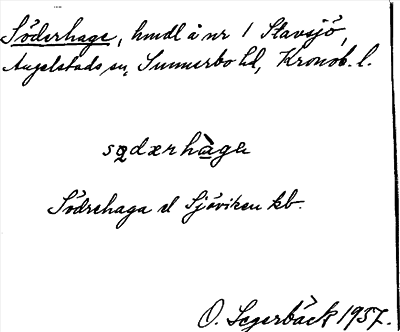 Söderhage, hmdl å nr 1 Stavsjö,
Angelstads sn, Sunnerbo hd, Kronob. l.
sødærhàga
Södrehaga el Sjöviken kb.
O. Segerbäck 1937.